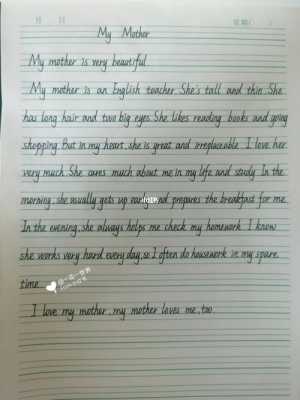 My Mother
My mother is very beautiful
My mother is an English teacher. She's tall and thin. She
has long hair and two big eyes. She likes reading books and going
shopping. But in my heart, she is great and irreplaceable. I love her
very much. She cares much about me in my life and study. In the
morning, she usually gets up early and prepares the breakfast for me.
In the evening, she always helps me check my homework. I know
she works very hard every day, so I often do housework in my spare
time.
I love my mother, my mother loves me, too.